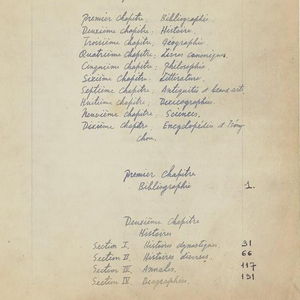 Premier chapitre. Bibliographie.
Deuxième chapitre. Histoire.
Troisième chapitre. Géographie
Quatrième chapitre. Livres canoniques.
Cinquième chapitre. Philosophie
Sixième chapitre. Littérature.
Septième chapitre. Antiquités et beaux arts
Huitième chapitre. Lexicographie.
Neuvième chapitre. Sciences.
Dixième chapitre. Encyclopédies et
Premier chapitre
Bibliographie 1.
Deuxième chapitre
Histoire
Section I. Histoires dynastiques. 31
Section II. Histoires diverses. 66
Section III. Annales. 117
Section IV. Biographies. 131